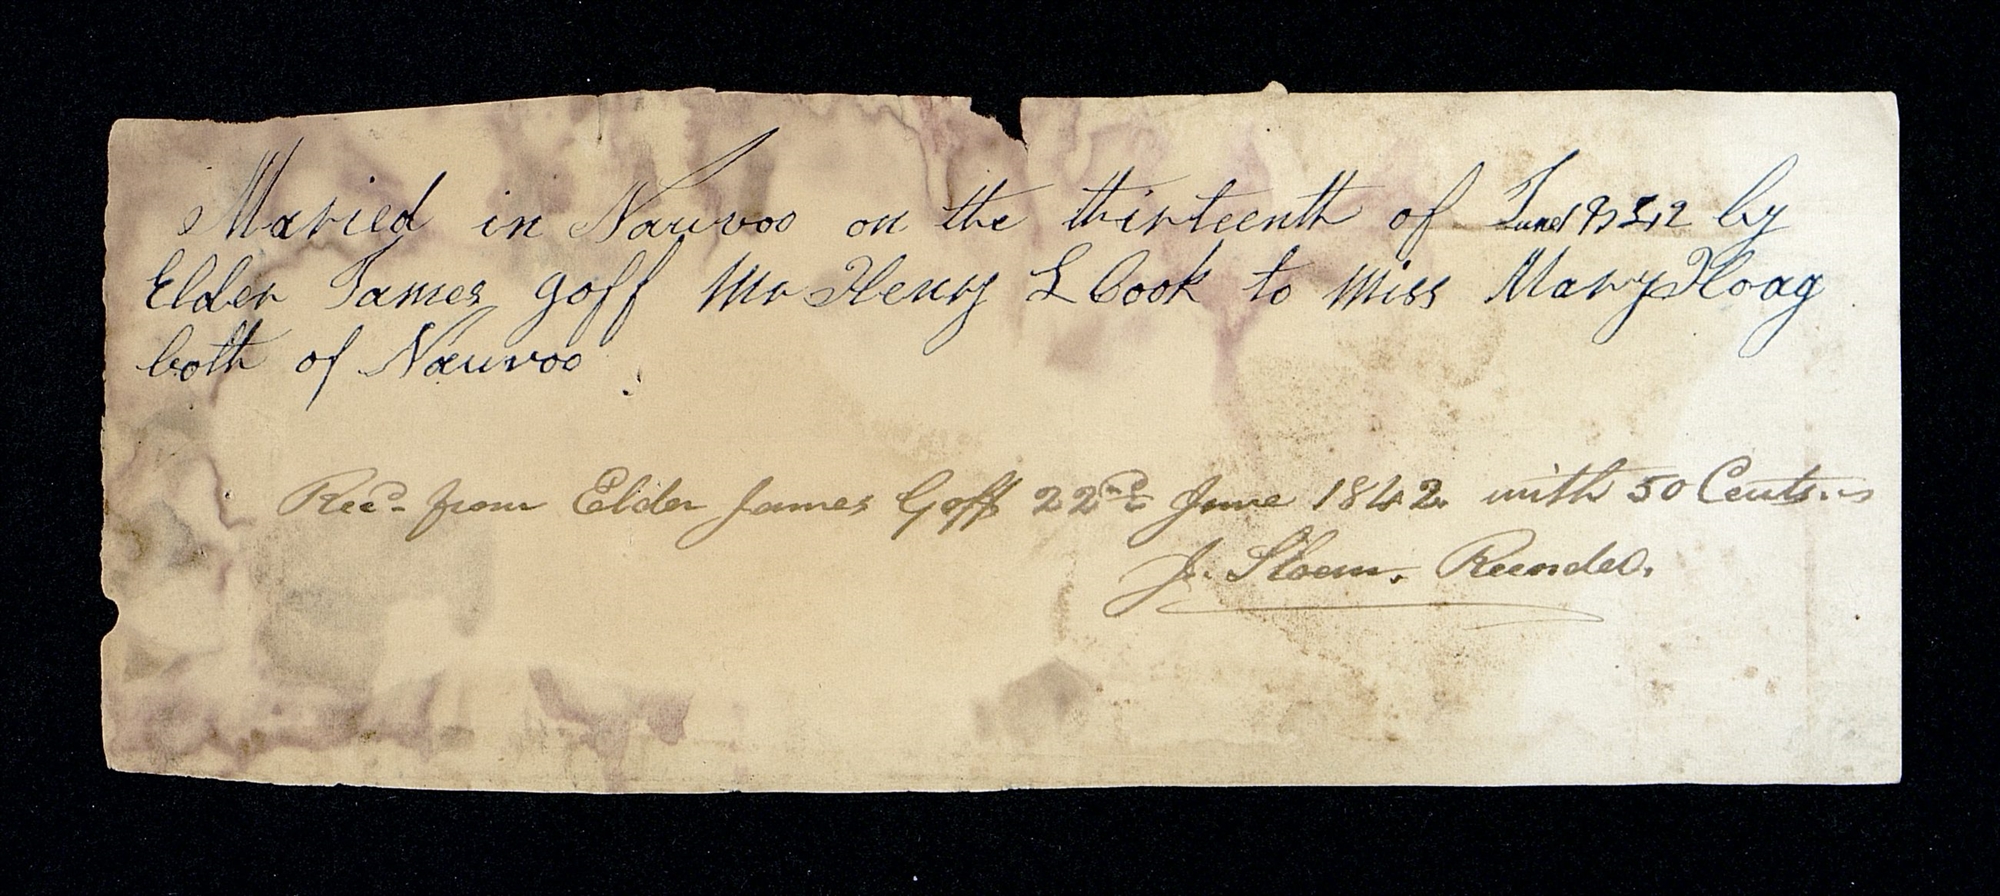 Maried in Nauvoo on the thirteenth of June 1842 by
Elder James goff Mr Henry L Cook to Miss Mary Hoag
both of Nauvoo
Recd. from Elder James Goff 22nd June 1842. with 50 Cents.
J. Sloan. Recorder.